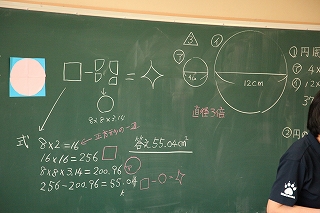 □－　＝
8×8×3.14
式
8×2=16 ← 正方形の一辺
16×16=256 □
8×8×3.14=200.96 ○
256-200.96=55.04
□－○＝
答え 55.04cm²
ア
12cm
直径3倍
① 円周
ア 4×
イ 12×
37
② 円の